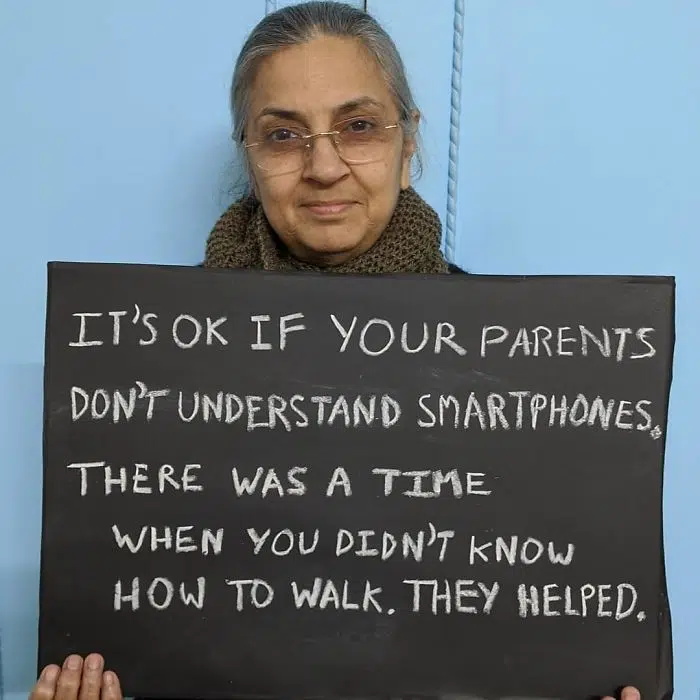 IT'S OK IF YOUR PARENTS
DON'T UNDERSTAND SMARTPHONES.
THERE WAS A TIME
WHEN YOU DIDN'T KNOW
HOW TO WALK. THEY HELPED.